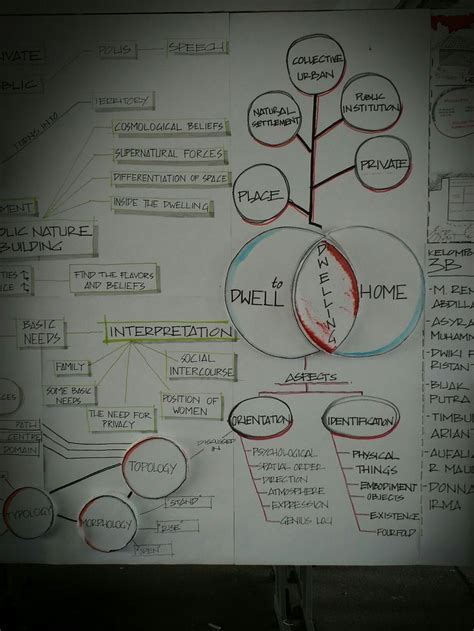 POLIS
SPEECH
TERRITORY
COSMOLOGICAL BELIEFS
SUPERNATURAL FORCES
DIFFERENTIATION OF SPACE
INSIDE THE DWELLING
NATURE
BUILDING
FIND THE FLAVORS
AND BELIEFS
BASIC
NEEDS
INTERPRETATION
FAMILY
SOCIAL
INTERCOURSE
SOME BASIC
NEEDS
POSITION OF
WOMEN
THE NEED FOR
PRIVACY
PATH
CENTRE
DOMAIN
TOPOLOGY
TYPOLOGY
MORPHOLOGY
"STAND"
"RISE"
"OPEN"
COLLECTIVE
URBAN
NATURAL
SETTLEMENT
PUBLIC
INSTITUTION
PLACE
PRIVATE
to
DWELL
DWELLING
HOME
ASPECTS
ORIENTATION
IDENTIFICATION
PSYCHOLOGICAL
SPATIAL ORDER
DIRECTION
ATMOSPHERE
EXPRESSION
GENIUS LOCI
PHYSICAL
THINGS
EMBODIMENT
OBJECTS
EXISTENCE
FOURFOLD
3B
ABDILLA
ASYRA
MUHAMM
DWIKI
RISTANT
PUTRA
TIMBUL
ARIAN
AUFALIA
R MAUL
DONNA
IRMA